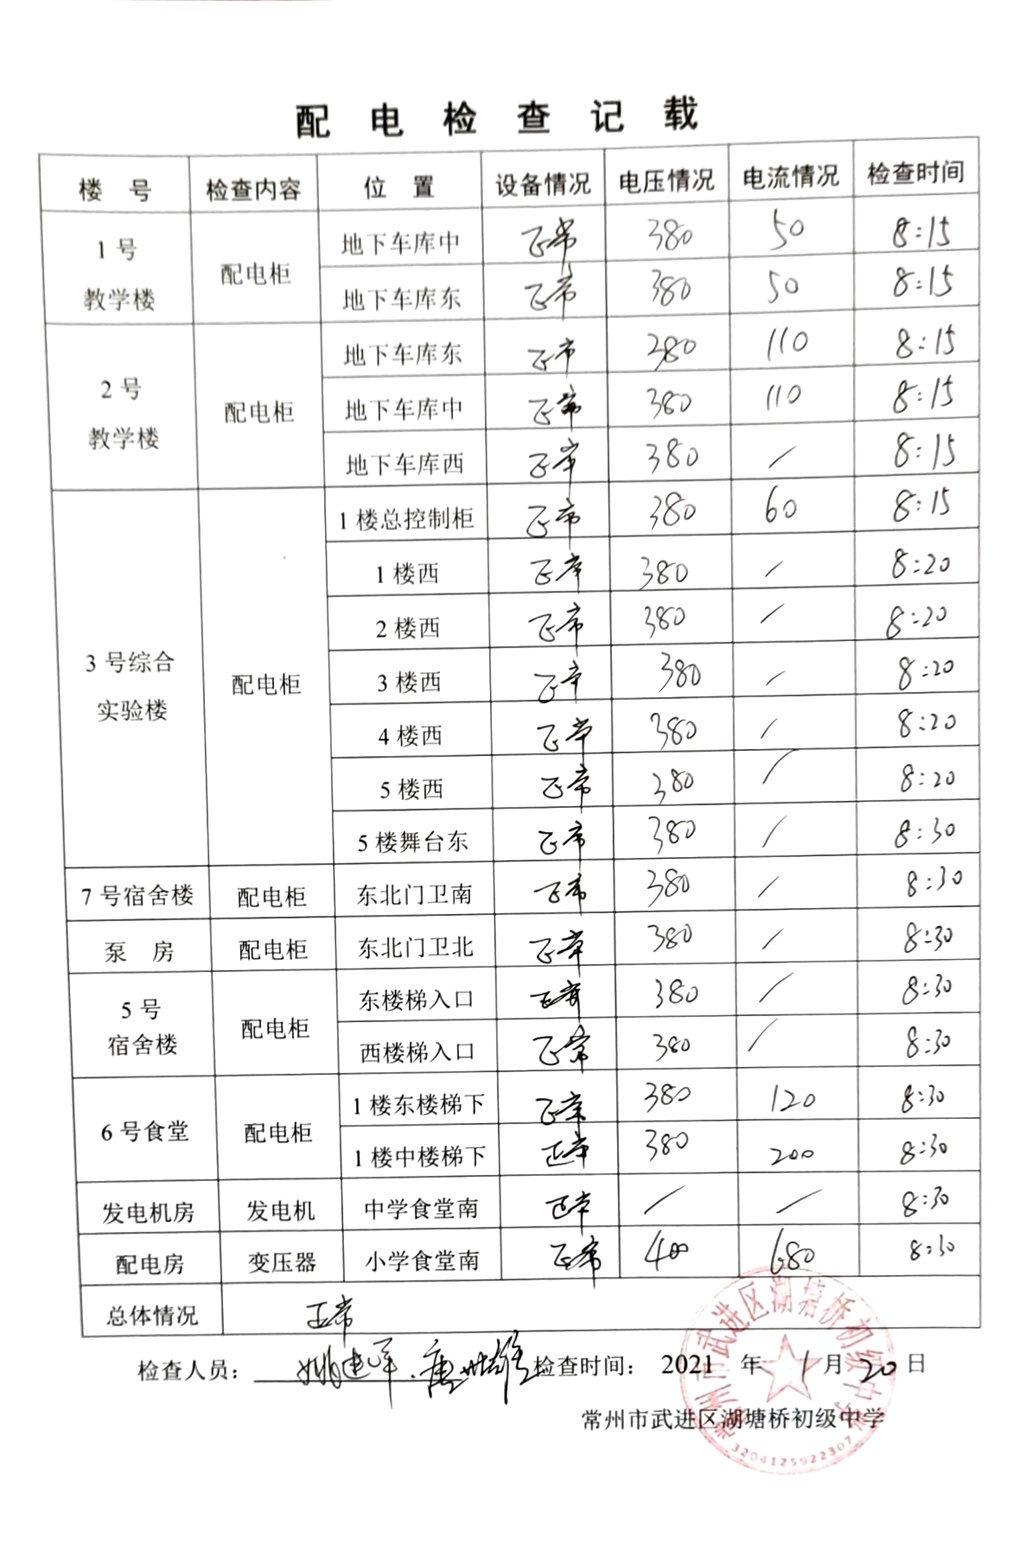 配电检查记载
楼 号 检查内容 位 置 设备情况 电压情况 电流情况 检查时间
1号 教学楼 配电柜 地下车库中 正常 380 50 8:15
地下车库东 正常 380 50 8:15
2号 教学楼 配电柜 地下车库东 正常 380 110 8:15
地下车库中 正常 380 110 8:15
地下车库西 正常 380 / 8:15
3号综合 实验楼 配电柜 1楼总控制柜 正常 380 60 8:15
1楼西 正常 380 / 8:20
2楼西 正常 380 / 8:20
3楼西 正常 380 / 8:20
4楼西 正常 380 / 8:20
5楼西 正常 380 / 8:20
5楼舞台东 正常 380 / 8:30
7号宿舍楼 配电柜 东北门卫南 正常 380 / 8:30
泵 房 配电柜 东北门卫北 正常 380 / 8:30
5号 宿舍楼 配电柜 东楼梯入口 正常 380 / 8:30
西楼梯入口 正常 380 / 8:30
6号食堂 配电柜 1楼东楼梯下 正常 380 120 8:30
1楼中楼梯下 正常 380 200 8:30
发电机房 发电机 中学食堂南 正常 / / 8:30
配电房 变压器 小学食堂南 正常 400 680 8:30
总体情况 正常
检查人员： 姚建军、唐世雄 检查时间： 2021 年 1月20日
常州市武进区湖塘桥初级中学
常州市武进区湖塘桥初级中学
3204125922307